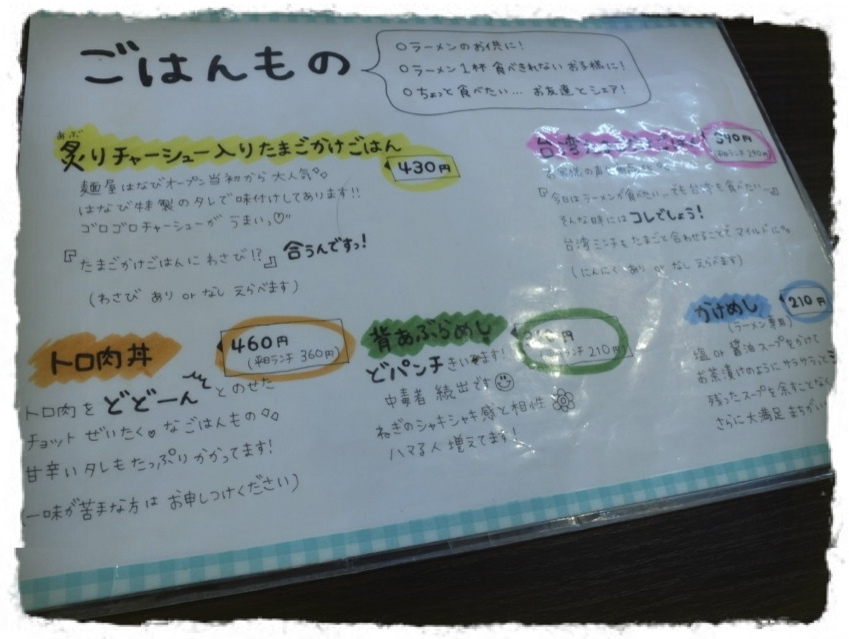 ごはんもの
○ラーメンのお供に!
○ラーメン1杯食べきれないお子様に!
○ちょっと食べたい… お友達とシェア!
あぶ
炙りチャーシュー入りたまごかけごはん
430円
麺屋はなびオープン当初から大人気
はなび特製のタレで味付けしてあります!!
ゴロゴロチャーシューが うまいっ♡
『たまごかけごはんに わさび!?』 合うんですっ!
(わさび あり or なし えらべます)
台湾
『今日はラーメンが食べたい…でも台湾も食べたい…』
そんな時には コレでしょう!
台湾ミンチも たまごと合わせることで マイルドに
(にんにく あり or なし えらべます)
トロ肉丼
460円
(平日ランチ 360円)
トロ肉を どどーん とのせた
チョット ぜいたく なごはんもの
甘辛いタレもたっぷり かかってます!
(一味が苦手な方は お申しつけください)
背あぶらめし
円
ランチ 210円)
どパンチきいてます!
中毒者 続出です
ねぎのシャキシャキ感と相性
ハマる人 増えてます!
かけめし
210円
(ラーメン専用)
塩 or 醤油スープをかけて
お茶漬けのようにサラサラっと
残ったスープを余すことなく
さらに大満足 まちがい